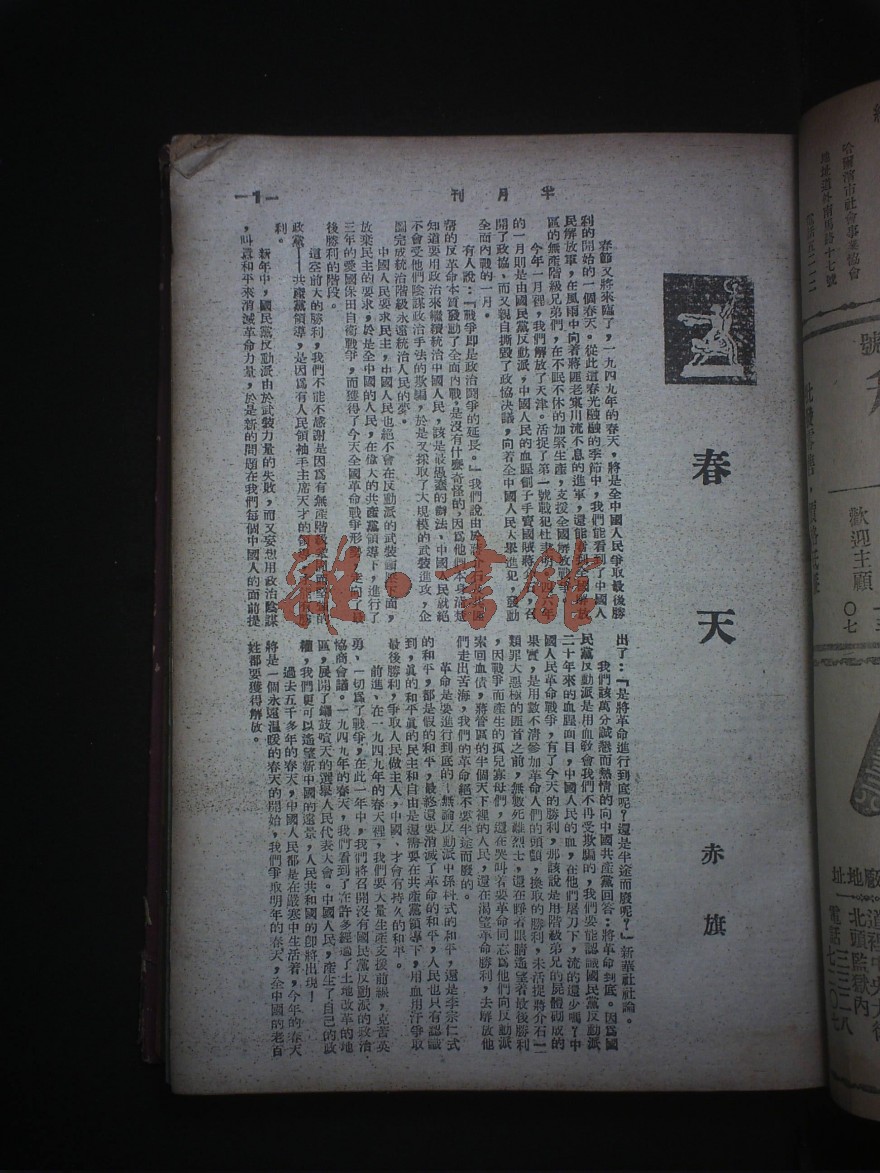 半月刊
—1—
春天
赤旗
春節又將來臨了，一九四九年的春天，將是全中國人民爭取最後勝
利的開始的一個春天。從此這春光融融的季節中，我們能看到了中國人
民解放軍，在風雨中向着蔣匪老窠川流不息的進軍，還能看到全國解放
區的無產階級兄弟們，在不眠不休的加緊生產，支援全國解放戰爭。
今年一月裡，我們解放了天津。活捉了第一號戰犯杜聿明，四六年
的一月則是由國民黨反動派，中國人民的血腥劊子手賣國賊蔣介石，召
開了政協，而又親自撕毀了政協决議，向着全中國人民大舉進犯，發動
全面內戰的一月。
有人說：『戰爭即是政治鬪爭的延長。』我們說由於蔣介石及其
帮的反革命本質發動了全面內戰，是沒有什麼奇怪的，因爲他們本身清楚
知道要用政治來繼續統治中國人民，該是最愚蠢的辦法、中國人民就絕
不會受他們陰謀政治手法的欺騙，於是又採取了大規模的武裝進攻，企
圖完成統治階級永遠統治人民的夢。
中國人民要求民主，中國人民也絕不會在反動派的武裝頭底下面，
放棄民主的要求，於是全中國的人民，在偉大的共產黨領導下，進行了
三年的愛國保田自衛戰爭，而獲得了今天全國革命戰爭形勢，走向了最
後勝利的階段。
這空前大的勝利，我們不能不感謝是因爲有無產階級
政黨——共產黨領導，是因爲有人民領袖毛主席天才的領導
利。
新年中，國民黨反動派由於武裝力量的失敗，而又妄想用政治陰謀
，叫囂和平來消滅革命力量，於是新的問題在我們每個中國人的面前提
出了：『是將革命進行到底呢？還是半途而廢呢？』新華社社論。
我們該萬分誠懇而熱情的向中國共產黨回答：將革命到底。因爲國
民黨反動派是用血敎會我們不再受欺騙的，我們要能認識國民黨反動派
二十年來的血腥面目，中國人民的血，在他們屠刀下，流的還少嗎？中
國人民革命戰爭，有了今天的勝利，那該說是用階級弟兄的屍體砌成的
果實，是用數不清參加革命人們的頭顱，換取的勝利，未活捉蔣介石一二
類罪大惡極的匪首之前，無數死難烈士，還在睜着眼睛遙望着最後勝利
，因戰爭而產生的孤兒寡母們，還在哭叫着要革命同志爲他們向反動派
索回血債，蔣管區的半個天下裡的人民，還在渴望革命勝利，去解放他
們走出苦海，我們的革命絕不要半途而廢的。
革命是要進行到底的—無論反動派中孫科式的和平，還是李宗仁式
的和平，都是假的和平，最終還要消滅了革命的和平，人民也只有認識
到，眞的和平眞的民主和自由是還需要在共產黨領導下，用血用汗爭取
最後勝利，爭取人民做主人，中國、才會有持久的和平。
前進、在一九四九年的春天裡，我們要大量生產支援前綫，克苦英
勇、一切爲了戰爭，在此一年中，我們將召開沒有國民黨反動派的政治
協商會議。一九四九年的春天，我們看到了在許多經過了土地改革的地
區，展開了鑼鼓喧天的選舉人民代表大會。中國人民，產生了自己的政
權，我們更可以遙望新中國的遠景，人民共和國的卽將出現！
過去五千多年的春天，中國人民都是在嚴寒中生活着，今年的春天
將是一個永遠温暖的春天的開始，我們爭取明年的春天，全中國的老百
姓都要獲得解放。
哈爾濱市社會事業協會
地址道外南馬路十七號
電話五二一二
號
歡迎主顧
〇七
廠地址
道裡中央大街
北頭監獄內
三三二八
電話七二〇七
雜·書館